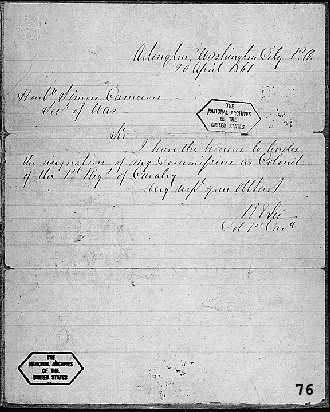 Arlington, Washington City P.O.
20 April 1861
Honble Simon Cameron
Secy of War
THE
NATIONAL ARCHIVES
OF THE
UNITED STATES
Sir
I have the honour to tender
the resignation of my commission as Colonel
of the 1st Regt of Cavalry
Very resp your Obt Servt
R E Lee
Col 1st Cavy
THE
NATIONAL ARCHIVES
OF THE
UNITED STATES
76